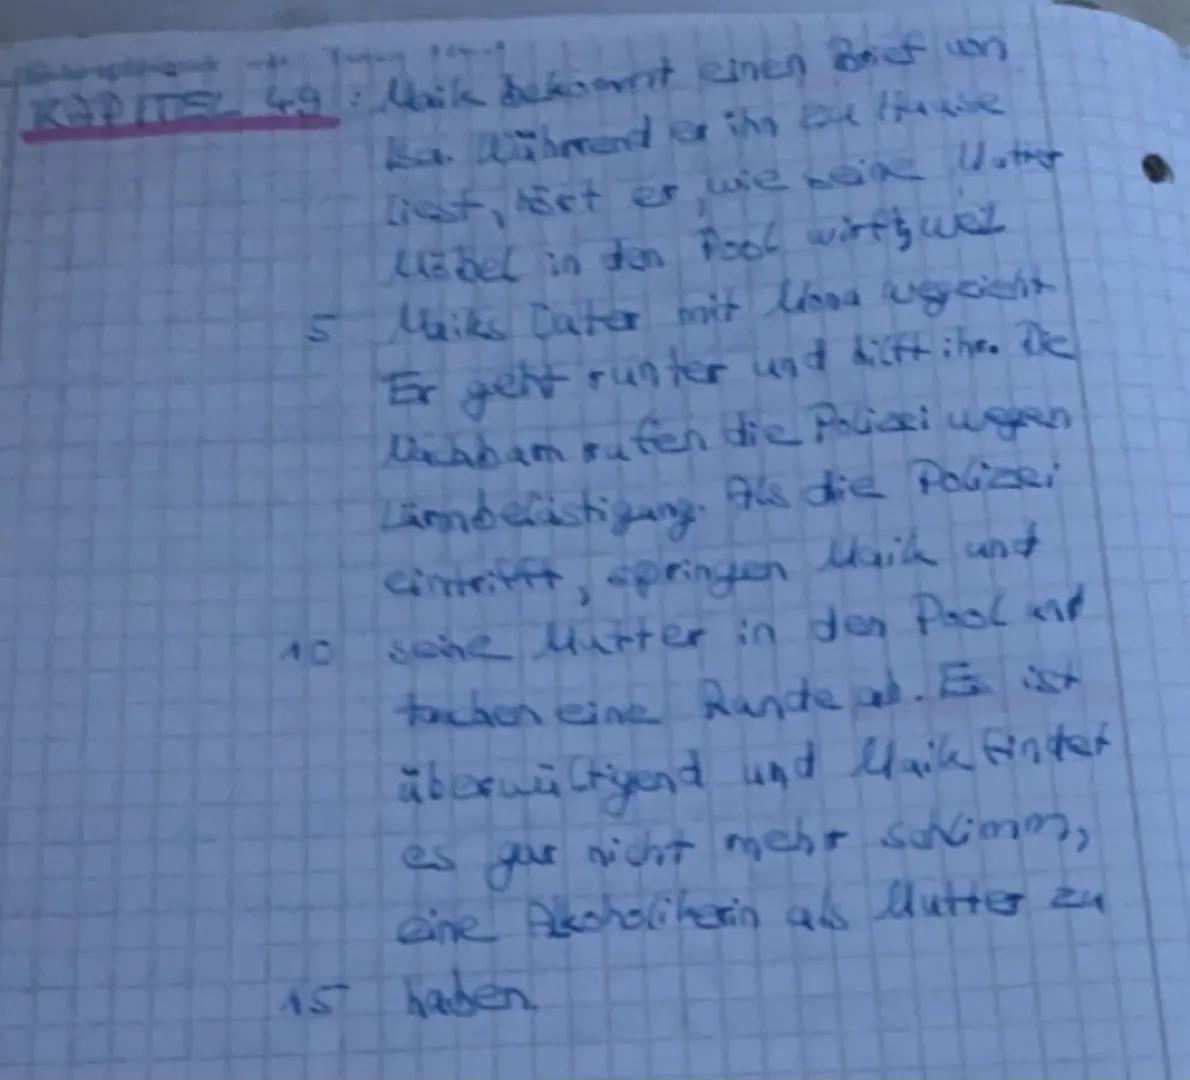 KAPITEL 49: Maik bekommt einen Brief von
Isa. Während er ihn zu Hause
liest, hört er, wie seine Mutter
Möbel in den Pool wirft, weil
5 Maiks Vater mit Mona wegzieht
Er geht runter und hilft ihr. Die
Nachbarn rufen die Polizei wegen
Lärmbelästigung. Als die Polizei
eintrifft, springen Maik und
10 seine Mutter in den Pool und
tauchen eine Runde ab. Es ist
überwältigend und Maik findet
es gar nicht mehr schlimm,
eine Alkoholikerin als Mutter zu
15 haben